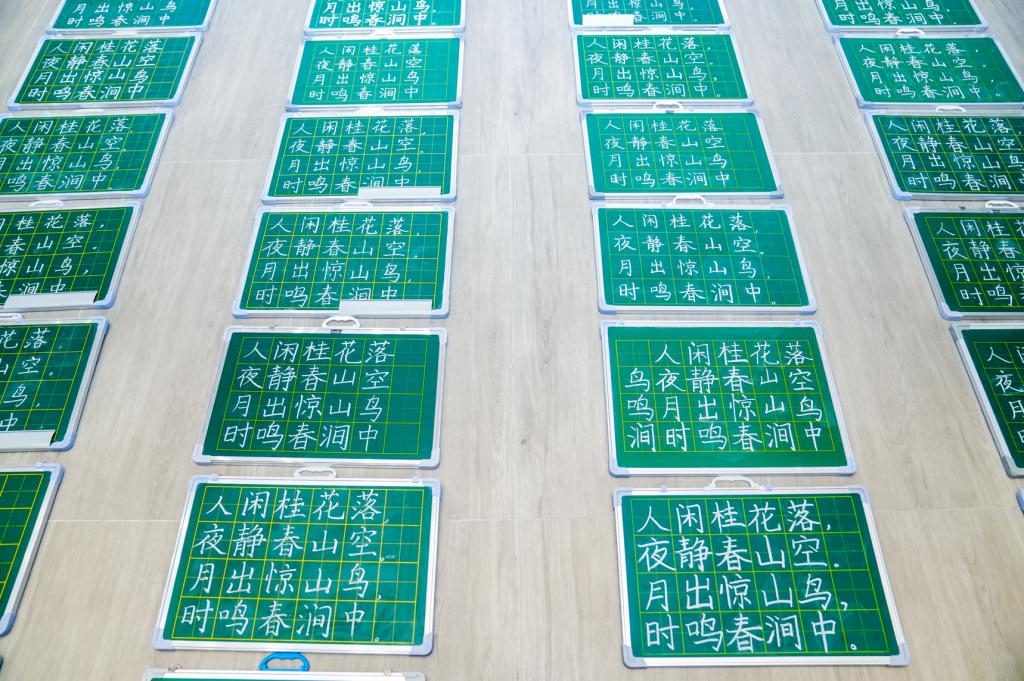 月出惊山鸟
时鸣春涧中
月出惊山鸟
时鸣春涧中
月出惊山鸟
时鸣春涧中
月出惊山鸟
时鸣春涧中
人闲桂花落
夜静春山空
月出惊山鸟
时鸣春涧中
人闲桂花落,
夜静春山空
月出惊山鸟
时鸣春涧中
人闲桂花落,
夜静春山空
月出惊山鸟,
时鸣春涧中
人闲桂花落,
夜静春山空
月出惊山鸟
时鸣春涧中
人闲桂花落,
夜静春山空
月出惊山鸟
时鸣春涧中
人闲桂花落,
夜静春山空.
月出惊山鸟
时鸣春涧中
人闲桂花落
夜静春山空
月出惊山鸟
时鸣春涧中
人闲桂花落,
夜静春山空
月出惊山鸟
时鸣春涧中
闲桂花落,
春山空.
惊山鸟,
人闲桂花落,
夜静春山空。
月出惊山鸟,
时鸣春涧中
人闲桂花落,
夜静春山空。
月出惊山鸟,
时鸣春涧中。
人闲桂花
夜静春山
月出惊山
时鸣春
花落,
山空.
鸟,
人闲桂花落
夜静春山空
月出惊山鸟
时鸣春涧中
人闲桂花落
鸟夜静春山空
鸣月出惊山鸟
涧时鸣春涧中
人闲
夜
月
时
人闲桂花落,
夜静春山空。
月出惊山鸟,
时鸣春涧中。
人闲桂花落,
夜静春山空.
月出惊山鸟,
时鸣春涧中。